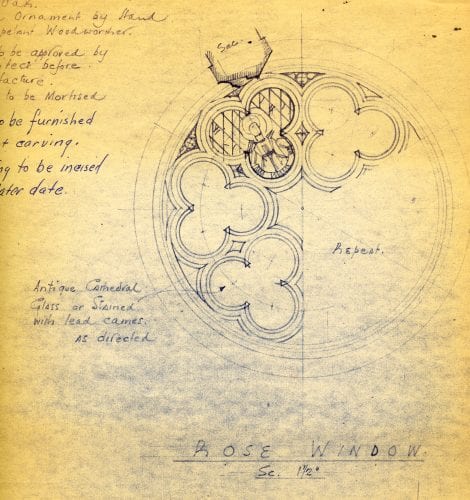 Oak.
Ornament by Hand
mpetent Woodworker.
to be approved by
itect before
facture.
to be Mortised
to be furnished
t carving.
ng to be incised
later date.
Repeat.
Antique Cathedral
Glass or Stained
with lead cames.
as directed
ROSE WINDOW.
Sc. 1½"